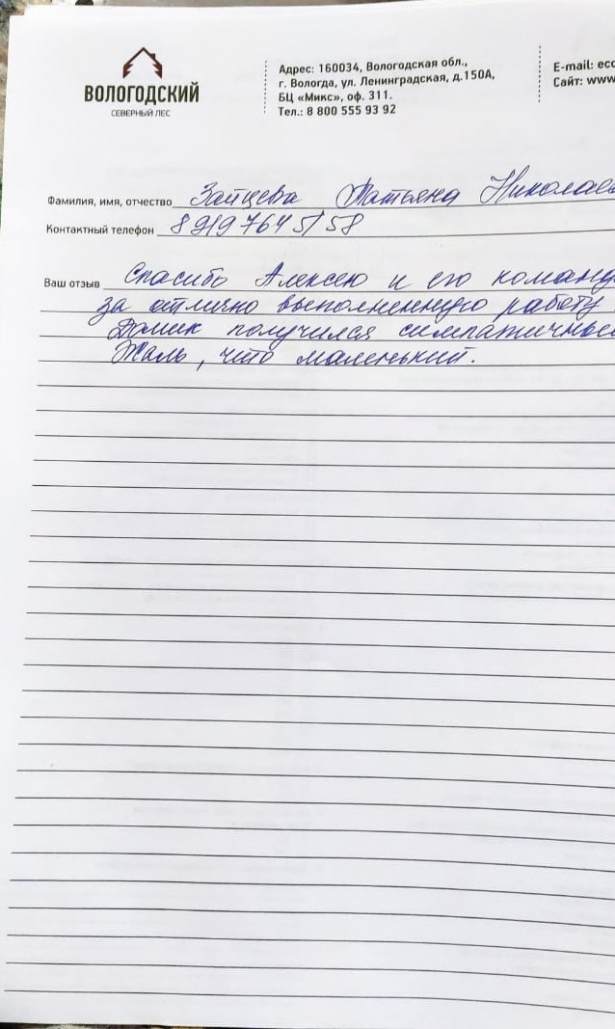 ВОЛОГОДСКИЙ
СЕВЕРНЫЙ ЛЕС
Адрес: 160034, Вологодская обл.,
г. Вологда, ул. Ленинградская, д.150А,
БЦ «Микс», оф. 311.
Тел.: 8 800 555 93 92
E-mail: eco
Сайт: www
Фамилия, имя, отчество Зайцева Татьяна Николаев
Контактный телефон 8 919 764 51 58
Ваш отзыв Спасибо Алексею и его команд
за отлично выполненную работу
Домик получился симпатичный
Жаль, что маленький.